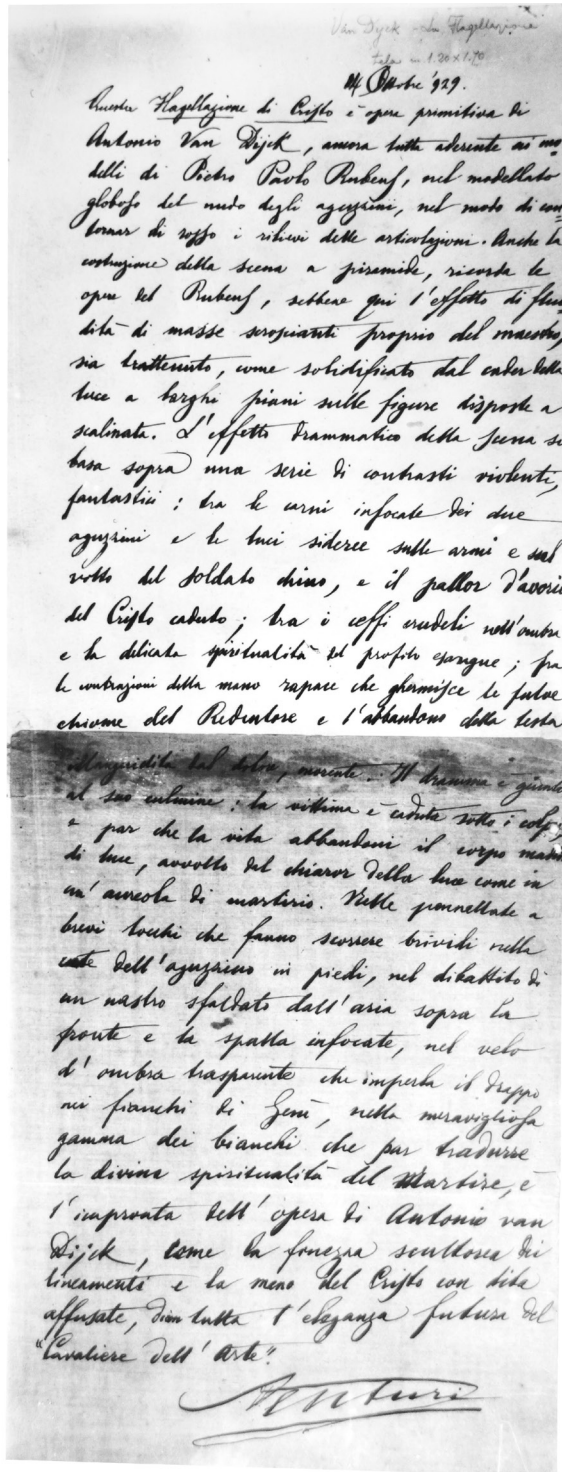 Van Dijck - La Flagellazione
tela m. 1.20 x 1.70
14 Ottobre '929.
Questa Flagellazione di Cristo è opera primitiva di
Antonio Van Dijck, ancora tutta aderente ai mo
delli di Pietro Paolo Rubens, nel modellato
globoso del nudo degli aguzzini, nel modo di con
tornar di rosso i rilievi delle articolazioni. Anche la
costruzione della scena a piramide, ricorda le
opere del Rubens, sebbene qui l'effetto di flui
dità di masse scroscianti proprio del maestro,
sia trattenuto, come solidificato dal cader della
luce a larghi piani sulle figure disposte a
scalinata. L'effetto drammatico della scena si
basa sopra una serie di contrasti violenti,
fantastici: tra le carni infocate dei due
aguzzini e le luci sideree sulle armi e sul
volto del soldato chino, e il pallor d'avorio
del Cristo caduto; tra i ceffi crudeli nell'ombra
e la delicata spiritualità del profilo esangue; fra
le contrazioni della mano rapace che ghermisce le fulve
chiome del Redentore e l'abbandono della testa
illanguidita dal dolore, morente. Il dramma è giunto
al suo culmine: la vittima è caduta sotto i colpi,
e par che la vita abbandoni il corpo
di luce, avvolto del chiaror della luce come in
un'aureola di martirio. Nelle pennellate a
brevi tocchi che fanno scorrere brividi nella
cute dell'aguzzino in piedi, nel dibattito di
un nastro sfaldato dall'aria sopra la
fronte e la spalla infocate, nel velo
d'ombra trasparente che imperla il drappo
sui fianchi di Gesù, nella meravigliosa
gamma dei bianchi che par tradurre
la divina spiritualità del Martire, è
l'impronta dell'opera di Antonio van
Dijck, come la finezza scultorea dei
lineamenti e la mano del Cristo con dita
affusate, tutta l'eleganza futura del
"Cavaliere dell'Arte".
Venturi